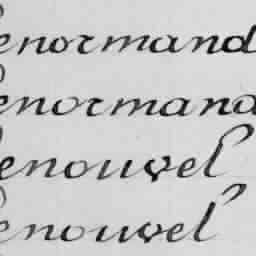 enormand
enormand
enouvel
enouvel